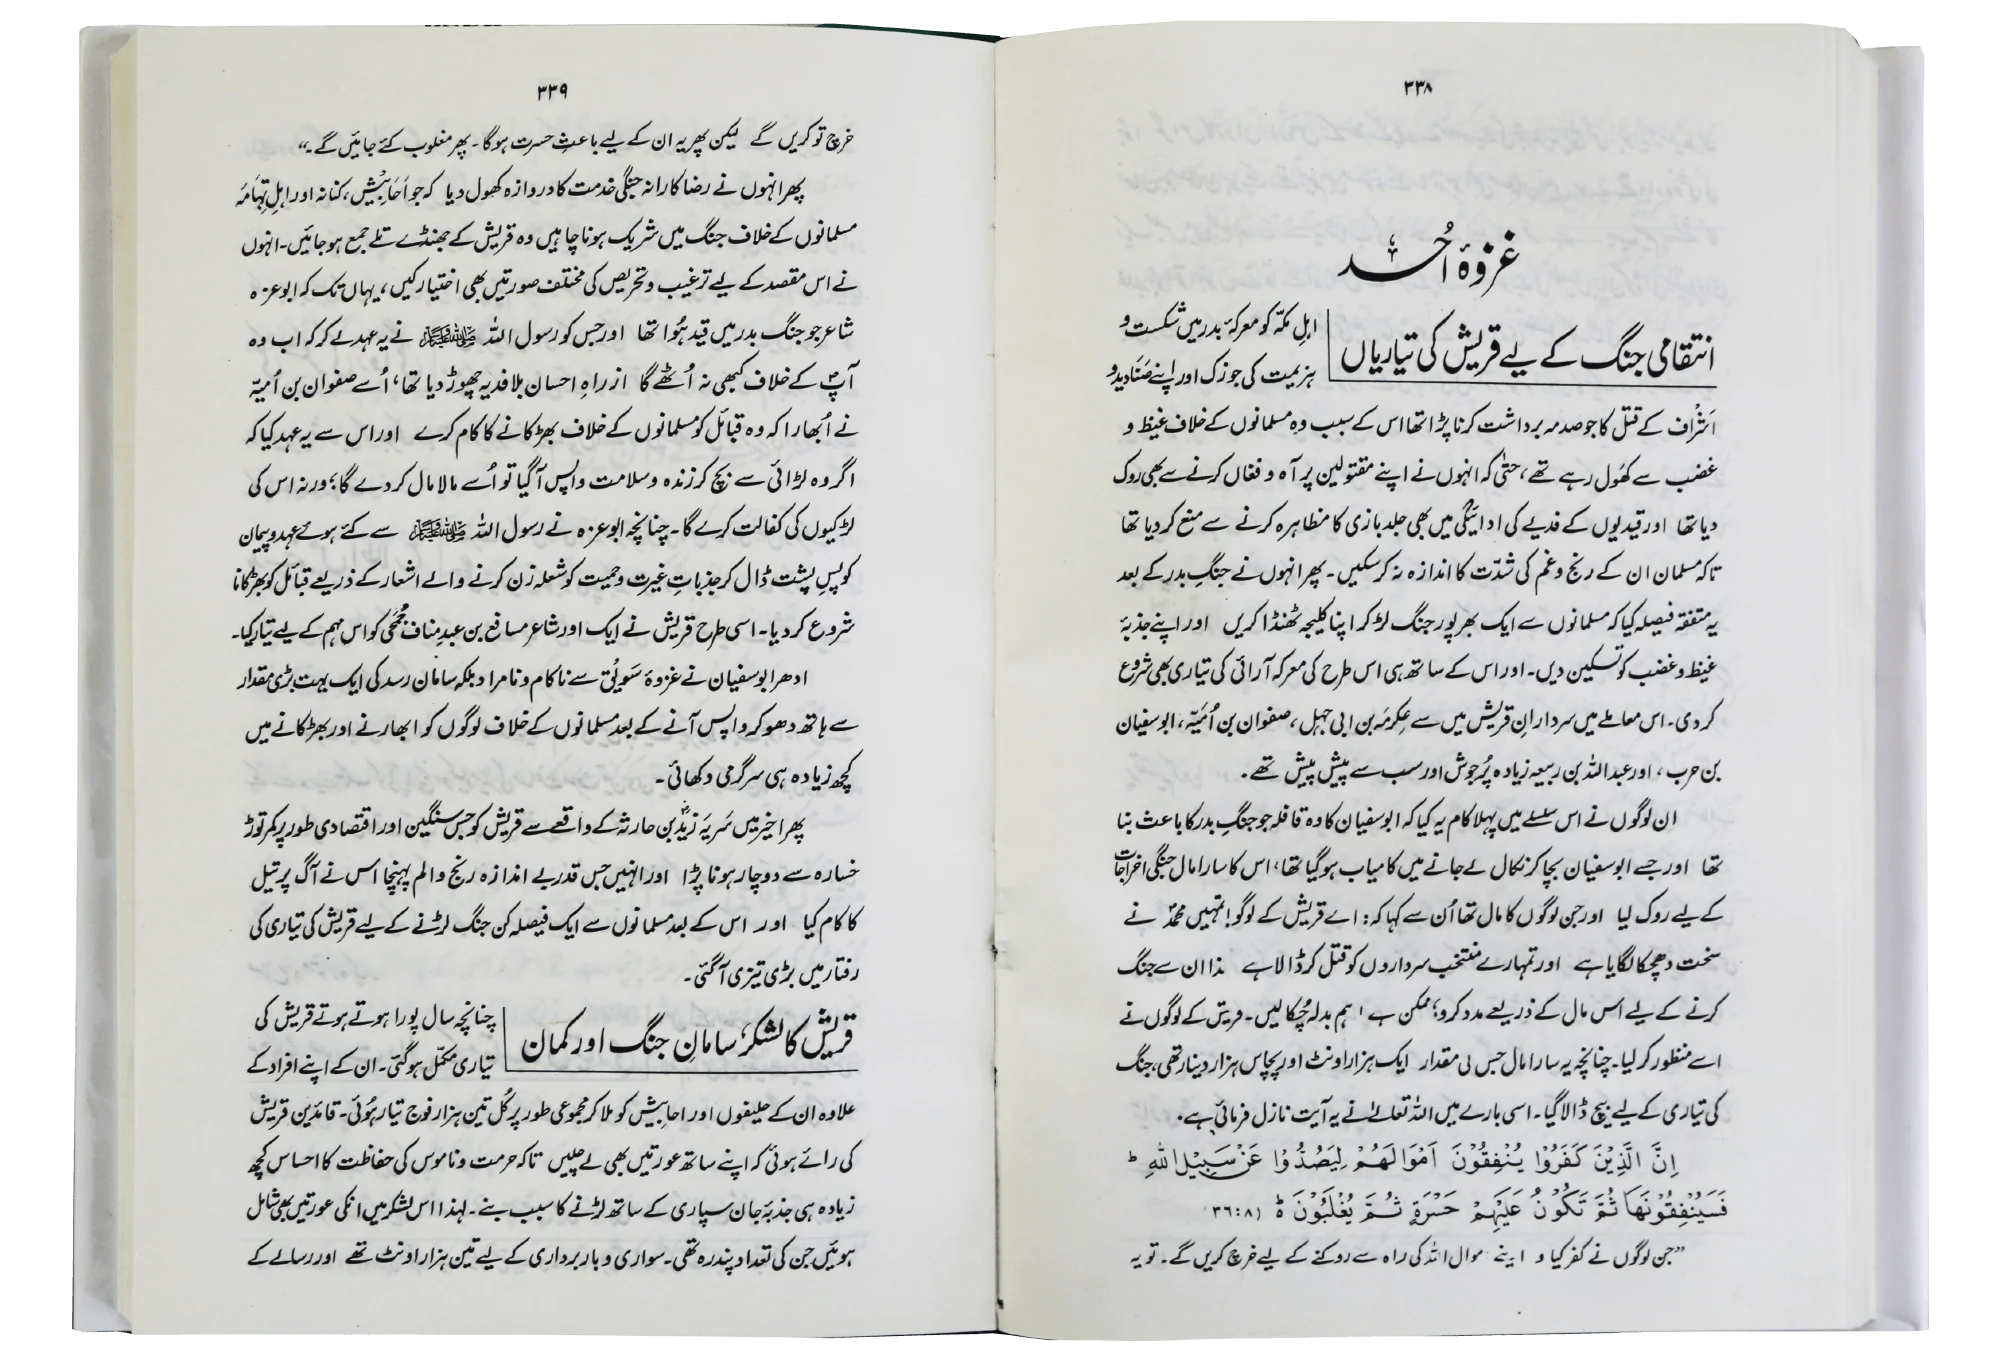 ۳۳۸
غزوۂ اُحد
انتقامی جنگ کے لیے قریش کی تیاریاں
اہلِ مکہّ کو معرکۂ بدر میں شکست و
ہزیمت کی جو زک اور اپنے صَنَادید و
اَشْراف کے قتل کا جو صدمہ برداشت کرنا پڑا تھا اس کے سبب وہ مسلمانوں کے خلاف غیظ و
غضب سے کھَول رہے تھے، حتیٰ کہ انہوں نے اپنے مقتولین پر آہ و فغاں کرنے سے بھی روک
دیا تھا اور قیدیوں کے فدیے کی ادائیگی میں بھی جلد بازی کا مظاہرہ کرنے سے منع کر دیا تھا
تاکہ مسلمان ان کے رنج و غم کی شدّت کا اندازہ نہ کر سکیں۔ پھر انہوں نے جنگِ بدر کے بعد
یہ متفقہ فیصلہ کیا کہ مسلمانوں سے ایک بھر پور جنگ لڑ کر اپنا کلیجہ ٹھنڈا کریں اور اپنے جذبۂ
غیظ و غضب کو تسکین دیں۔ اور اس کے ساتھ ہی اس طرح کی معرکہ آرائی کی تیاری بھی شروع
کر دی۔ اس معاملے میں سردارانِ قریش میں سے عِکرمَہ بن ابی جہل، صفوان بن اُمَیّہ، ابوسفیان
بن حرب، اور عبد اللہ بن ربیعہ زیادہ پُرجوش اور سب سے پیش پیش تھے۔
ان لوگوں نے اس سلسلے میں پہلا کام یہ کیا کہ ابوسفیان کا وہ قافلہ جو جنگِ بدر کا باعث بنا
تھا اور جسے ابوسفیان بچا کر نکال لے جانے میں کامیاب ہوگیا تھا، اس کا سارا مال جنگی اخراجات
کے لیے روک لیا اور جن لوگوں کا مال تھا اُن سے کہا کہ: اے قریش کے لوگو! تمہیں محمدؐ نے
سخت دھچکا لگایا ہے اور تمہارے منتخب سرداروں کو قتل کر ڈالا ہے ہذا ان سے جنگ
کرنے کے لیے اس مال کے ذریعے مدد کرو؛ ممکن ہے ہم بدلہ چُکا لیں۔ قریش کے لوگوں نے
اسے منظور کر لیا۔ چنانچہ یہ سارا مال جس کی مقدار ایک ہزار اونٹ اور پچاس ہزار دینار تھی، جنگ
کی تیاری کے لیے بیچ ڈالا گیا۔ اسی بارے میں اللہ تعالےٰ نے یہ آیت نازل فرمائی ہے۔
اِنَّ الَّذِيْنَ كَفَرُوْا يُنْفِقُوْنَ اَمْوَالَهُمْ لِيَصُدُّوْا عَنْ سَبِيْلِ اللهِ ؕ
فَسَيُنْفِقُوْنَهَا ثُمَّ تَكُوْنُ عَلَيْهِمْ حَسْرَةً ثُمَّ يُغْلَبُوْنَ ؕ (۸:۳۶
”جن لوگوں نے کفر کیا و اپنے موال اللہ کی راہ سے روکنے کے لیے خرچ کریں گے۔ تو یہ
۳۳۹
خرچ تو کریں گے لیکن پھر یہ ان کے لیے باعثِ حسرت ہوگا۔ پھر مغلوب کئے جائیں گے۔“
پھر انہوں نے رضا کارانہ جنگی خدمت کا دروازہ کھول دیا کہ جو اَحَابِیْش، کنانہ اور اہلِ تِہَامَہ
مسلمانوں کے خلاف جنگ میں شریک ہونا چاہیں وہ قریش کے جھنڈے تلے جمع ہو جائیں۔ انہوں
نے اس مقصد کے لیے ترغیب و تحریص کی مختلف صورتیں بھی اختیار کیں، یہاں تک کہ ابوعزہ
شاعر جو جنگ بدر میں قید ہُوا تھا اور جس کو رسول اللہ ﷺ نے یہ عہد لے کر کہ اب وہ
آپؐ کے خلاف کبھی نہ اُٹھے گا ازراہِ احسان بلا فدیہ چھوڑ دیا تھا، اُسے صفوان بن اُمیّہ
نے اُبھارا کہ وہ قبائل کو مسلمانوں کے خلاف بھڑکانے کا کام کرے اور اس سے یہ عہد کیا کہ
اگر وہ لڑائی سے بچ کر زندہ و سلامت واپس آگیا تو اُسے مالا مال کر دے گا؛ ورنہ اس کی
لڑکیوں کی کفالت کرے گا۔ چنانچہ ابوعزہ نے رسول اللہ ﷺ سے کئے ہوئے عہد و پیمان
کو پسِ پشت ڈال کر جذباتِ غیرت و حمیت کو شعلہ زن کرنے والے اشعار کے ذریعے قبائل کو بھڑکانا
شروع کر دیا۔ اسی طرح قریش نے ایک اور شاعر مسافع بن عبدِ مناف جُمَحِی کو اس مہم کے لیے تیار کیا۔
ادھر ابوسفیان نے غزوۂ سَوِیْق سے ناکام و نامراد بلکہ سامان رسد کی ایک بہت بڑی مقدار
سے ہاتھ دھو کر واپس آنے کے بعد مسلمانوں کے خلاف لوگوں کو ابھارنے اور بھڑکانے میں
کچھ زیادہ ہی سرگرمی دکھائی۔
پھر اخیر میں سَریَہ زیدؓ بن حارثہ کے واقعے سے قریش کو جس سنگین اور اقتصادی طور پر کمر توڑ
خسارہ سے دوچار ہونا پڑا اور انہیں جس قدر بے اندازہ رنج و الم پہنچا اس نے آگ پر تیل
کا کام کیا اور اس کے بعد مسلمانوں سے ایک فیصلہ کن جنگ لڑنے کے لیے قریش کی تیاری کی
رفتار میں بڑی تیزی آگئی۔
قریش کا لشکر، سامانِ جنگ اور کمان
چنانچہ سال پورا ہوتے ہوتے قریش کی
تیاری مکمّل ہوگئی۔ ان کے اپنے افراد کے
علاوہ ان کے حلیفوں اور احابیش کو ملا کر مجموعی طور پر کُل تین ہزار فوج تیار ہُوئی۔ قائدینِ قریش
کی رائے ہوئی کہ اپنے ساتھ عورتیں بھی لے چلیں تاکہ حرمت و ناموس کی حفاظت کا احساس کچھ
زیادہ ہی جذبۂ جان سپاری کے ساتھ لڑنے کا سبب بنے۔ لہٰذا اس لشکر میں انکی عورتیں بھی شامل
ہوئیں جن کی تعداد پندرہ تھی۔ سواری و باربرداری کے لیے تین ہزار اونٹ تھے اور رسالے کے